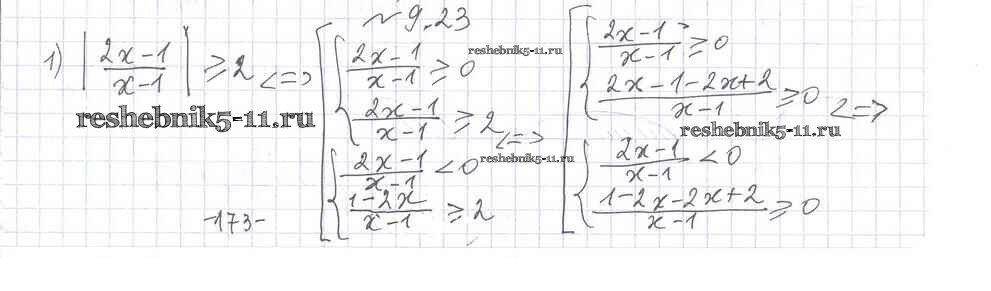 № 9.23
1) |(2x-1)/(x-1)| ≥ 2 <=> [ { (2x-1)/(x-1) ≥ 0 ; (2x-1)/(x-1) ≥ 2 ; { (2x-1)/(x-1) < 0 ; (1-2x)/(x-1) ≥ 2 <=> [ { (2x-1)/(x-1) ≥ 0 ; (2x-1-2x+2)/(x-1) ≥ 0 ; { (2x-1)/(x-1) < 0 ; (1-2x-2x+2)/(x-1) ≥ 0 <=>
reshebnik5-11.ru
reshebnik5-11.ru
reshebnik5-11.ru
reshebnik5-11.ru
-173-